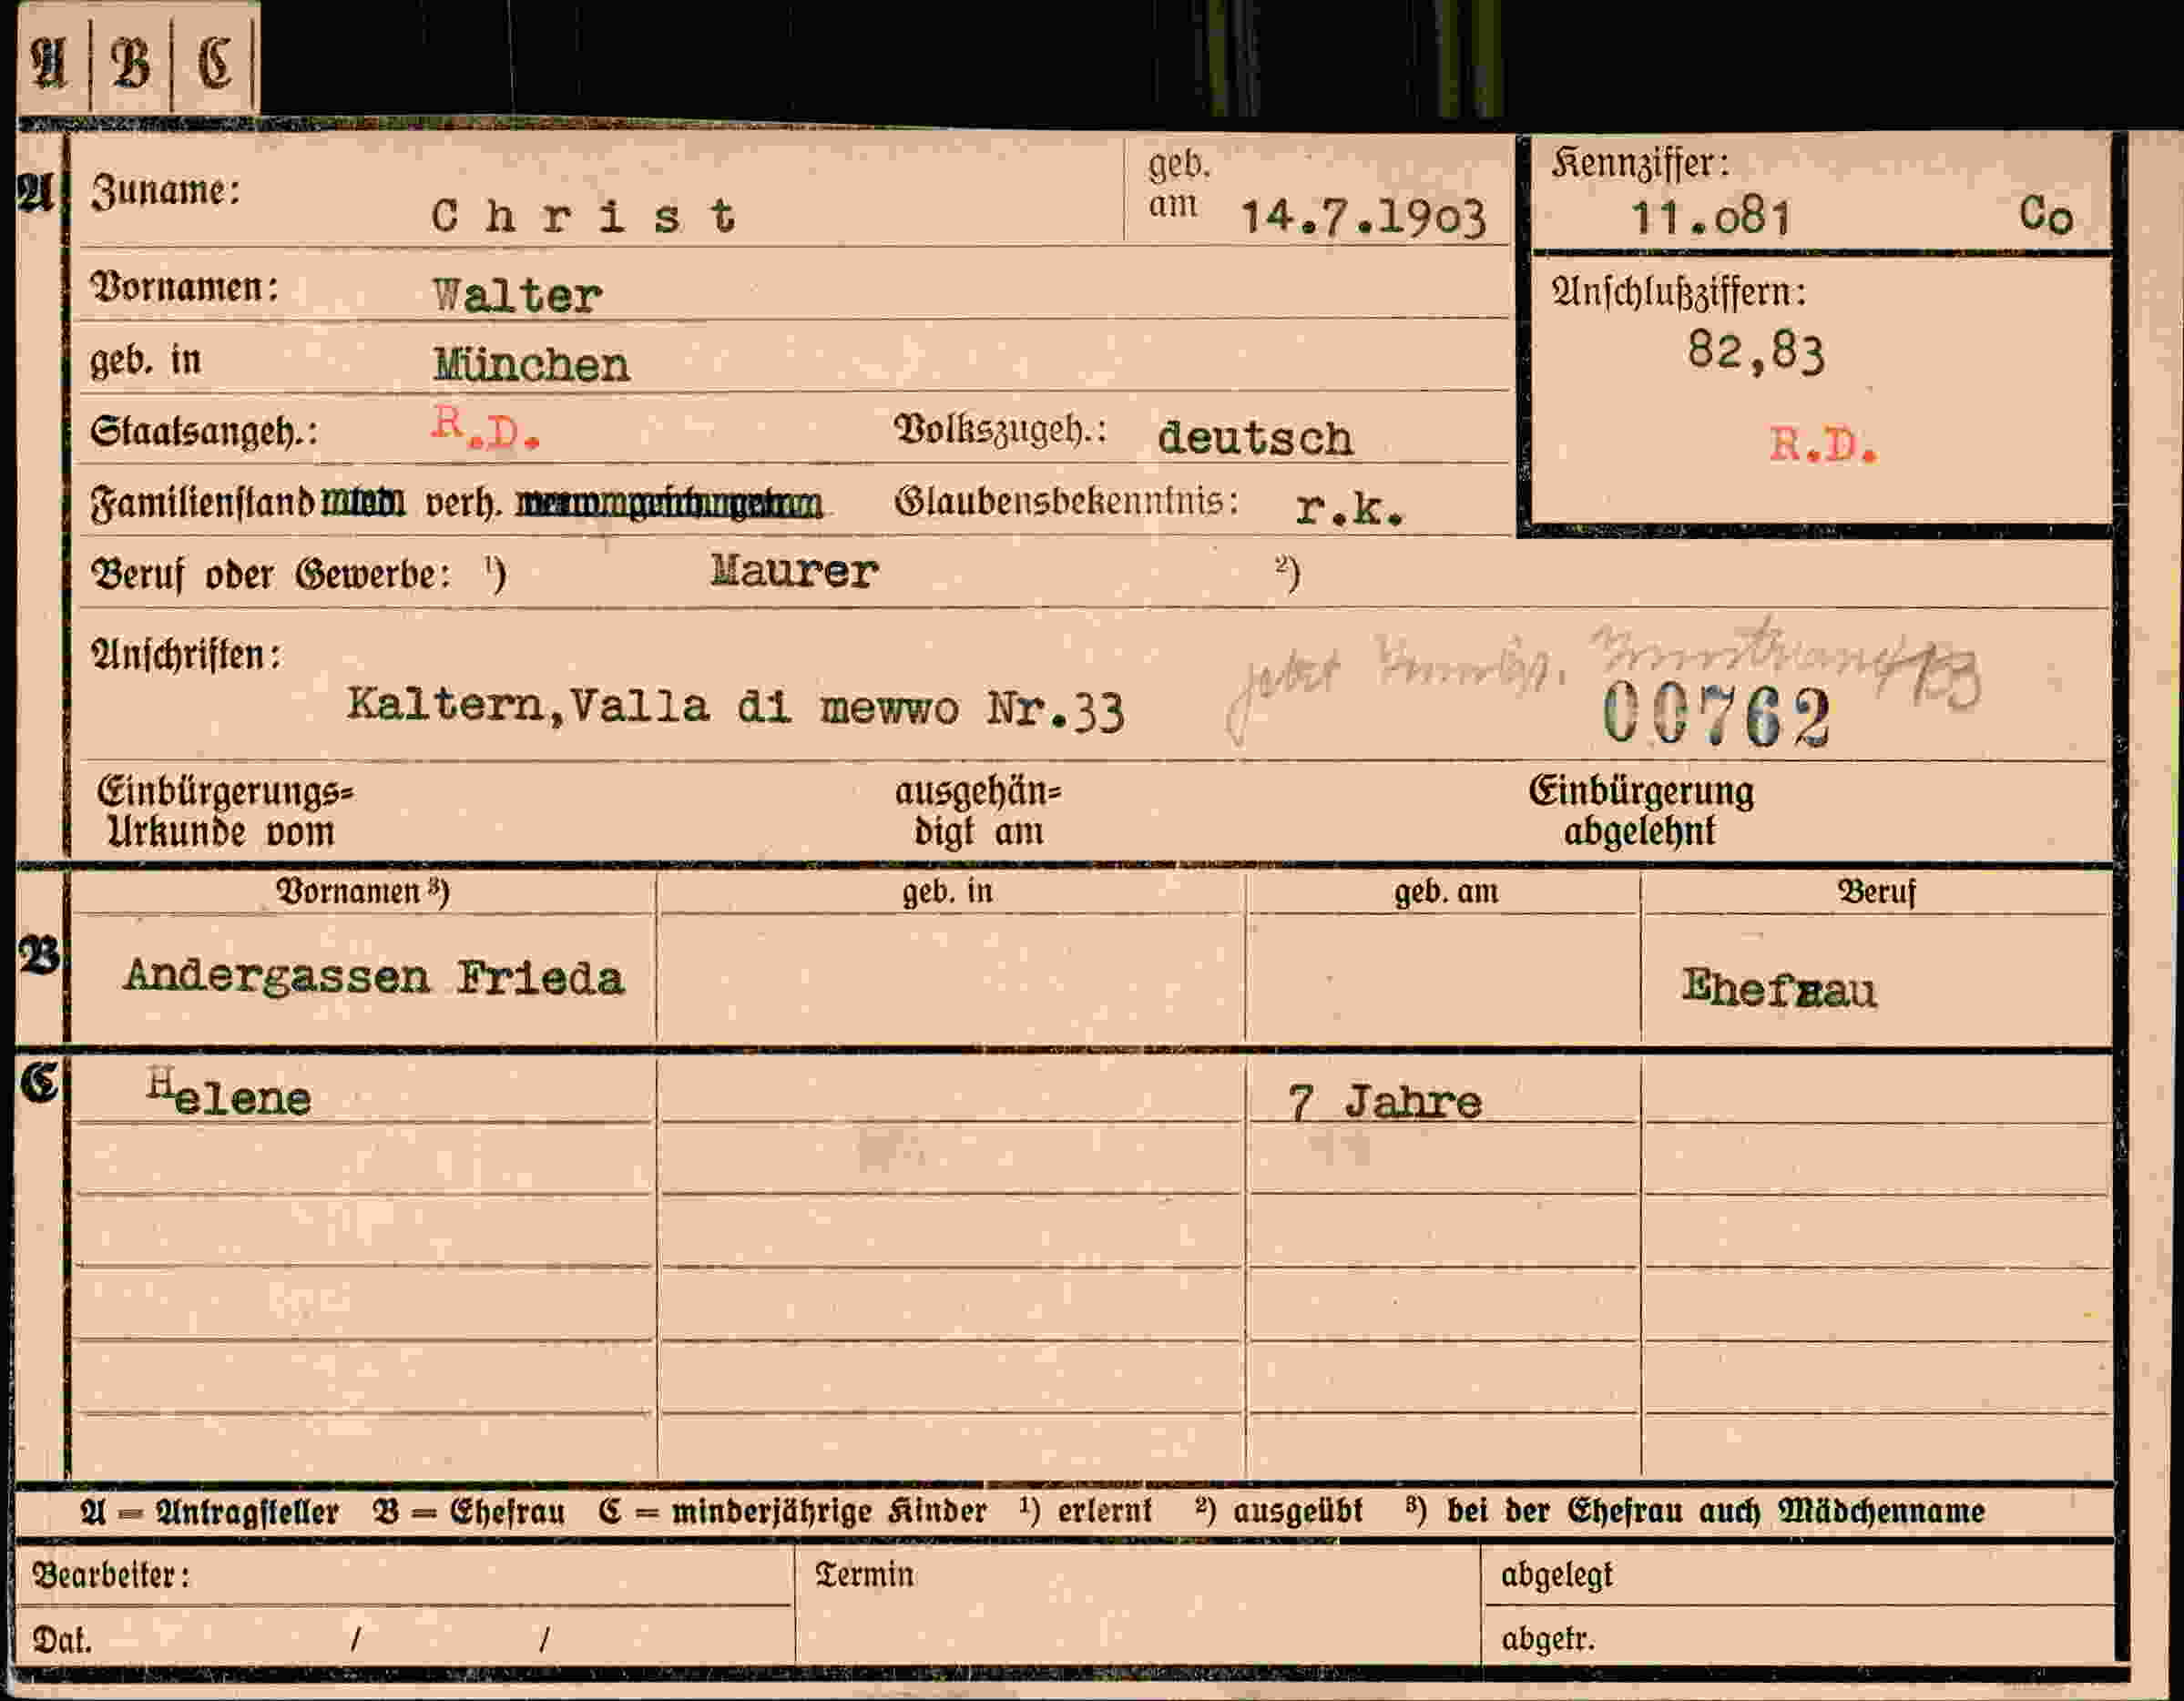 A B C
A Zuname: Christ geb. am 14.7.1903 Kennziffer: 11.081 Co
Vornamen: Walter Anschlußziffern:
geb. in München 82,83
Staatsangeh.: R.D. Volkszugeh.: deutsch R.D.
Familienstand verh. Glaubensbekenntnis: r.k.
Beruf oder Gewerbe: ¹) Maurer ²)
Anschriften: jetzt
Kaltern,Valla di mewwo Nr.33 00762
Einbürgerungs= ausgehän= Einbürgerung
Urkunde vom digt am abgelehnt
Vornamen ³) geb. in geb. am Beruf
B Andergassen Frieda Ehefrau
C Helene 7 Jahre
A = Antragsteller B = Ehefrau C = minderjährige Kinder ¹) erlernt ²) ausgeübt ³) bei der Ehefrau auch Mädchenname
Bearbeiter: Termin abgelegt
Dat. / / abgetr.